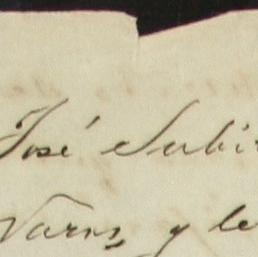 José Subi
Varos, y le